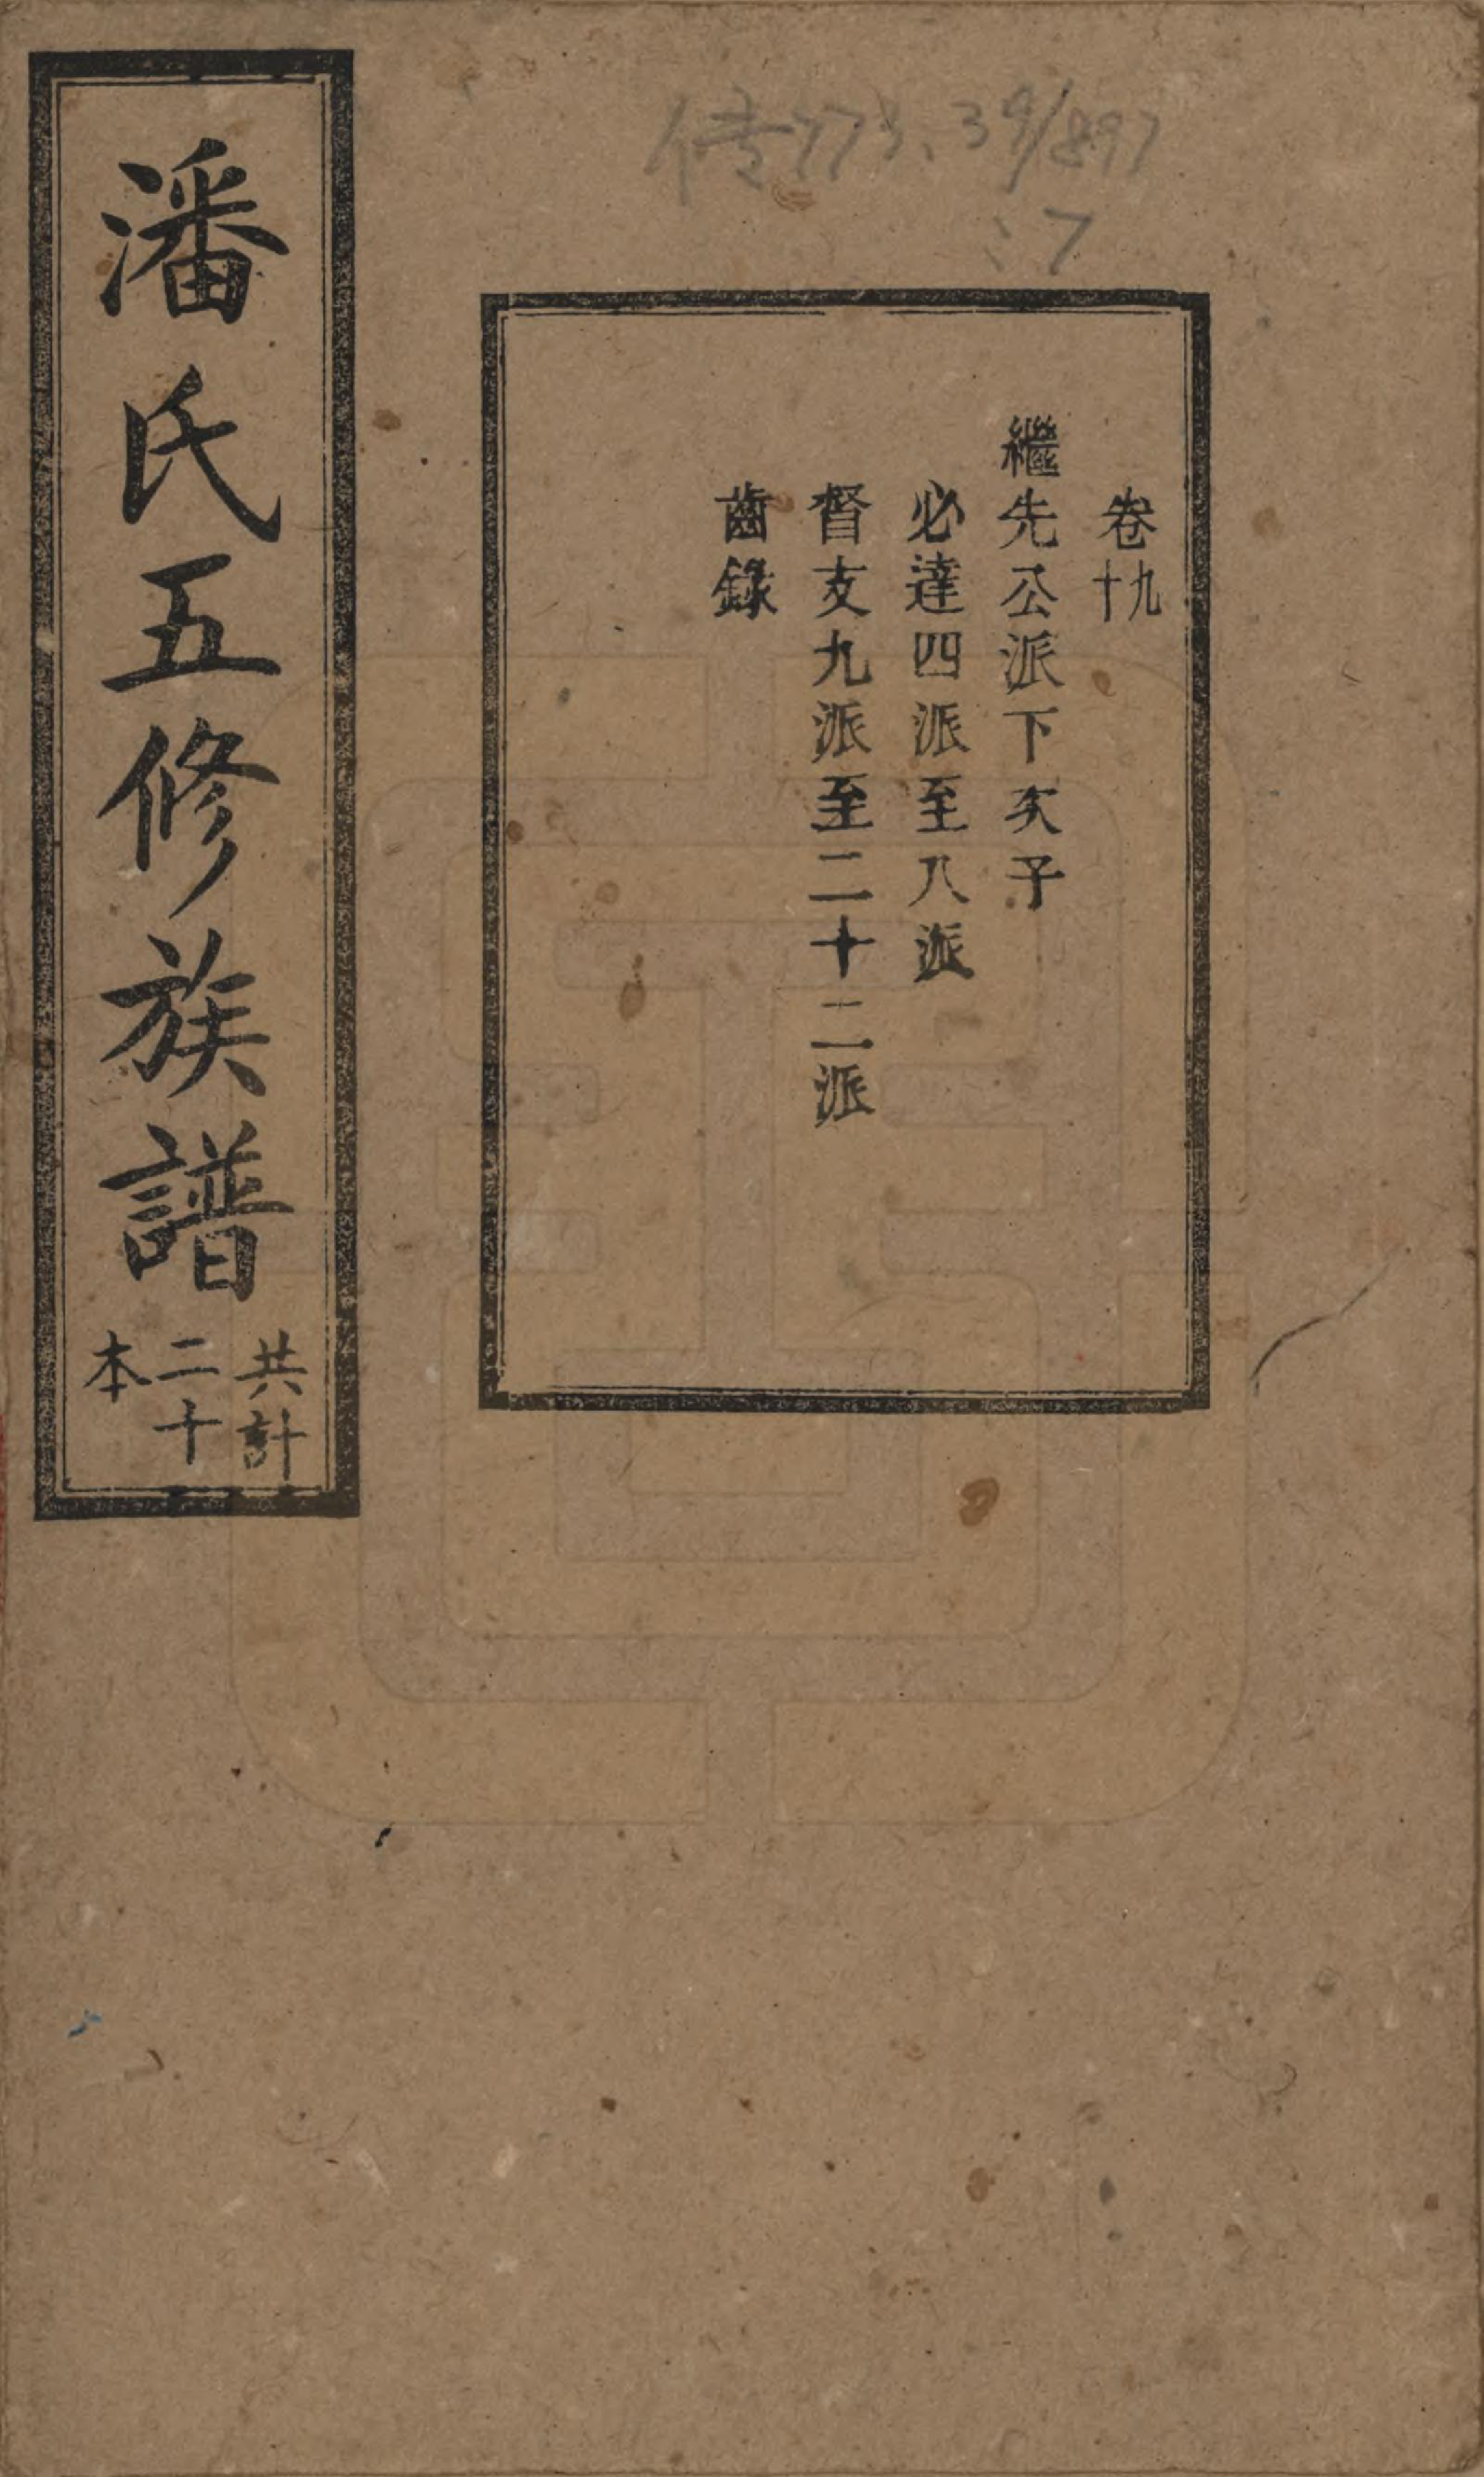 传773.39/897
:7
卷十九
繼先公派下次子
必達四派至八派
督支九派至二十二派
齒錄
潘氏五修族譜
共計
二十
本